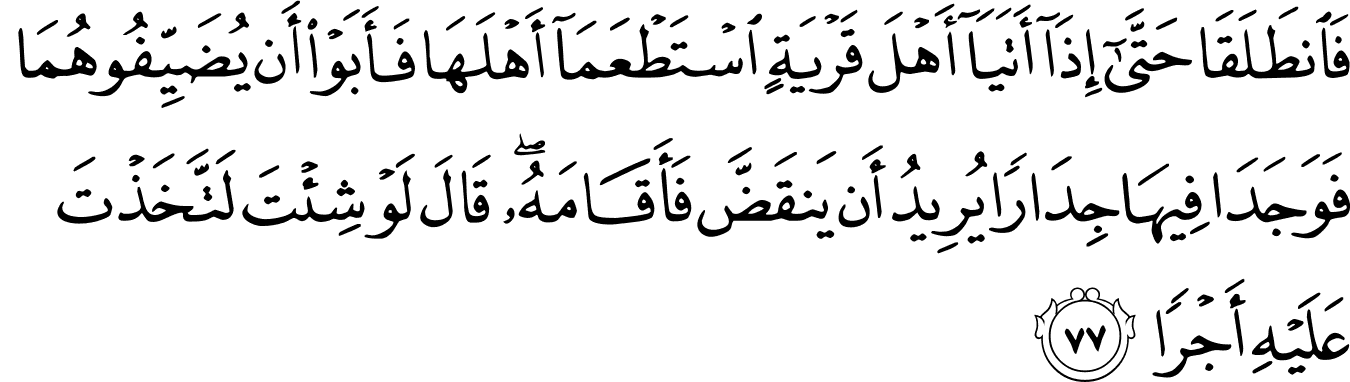 فَٱنطَلَقَا حَتَّىٰٓ إِذَآ أَتَيَآ أَهْلَ قَرْيَةٍ ٱسْتَطْعَمَآ أَهْلَهَا فَأَبَوْا۟ أَن يُضَيِّفُوهُمَا
فَوَجَدَا فِيهَا جِدَارًا يُرِيدُ أَن يَنقَضَّ فَأَقَامَهُۥ ۖ قَالَ لَوْ شِئْتَ لَتَّخَذْتَ
عَلَيْهِ أَجْرًا ٧٧